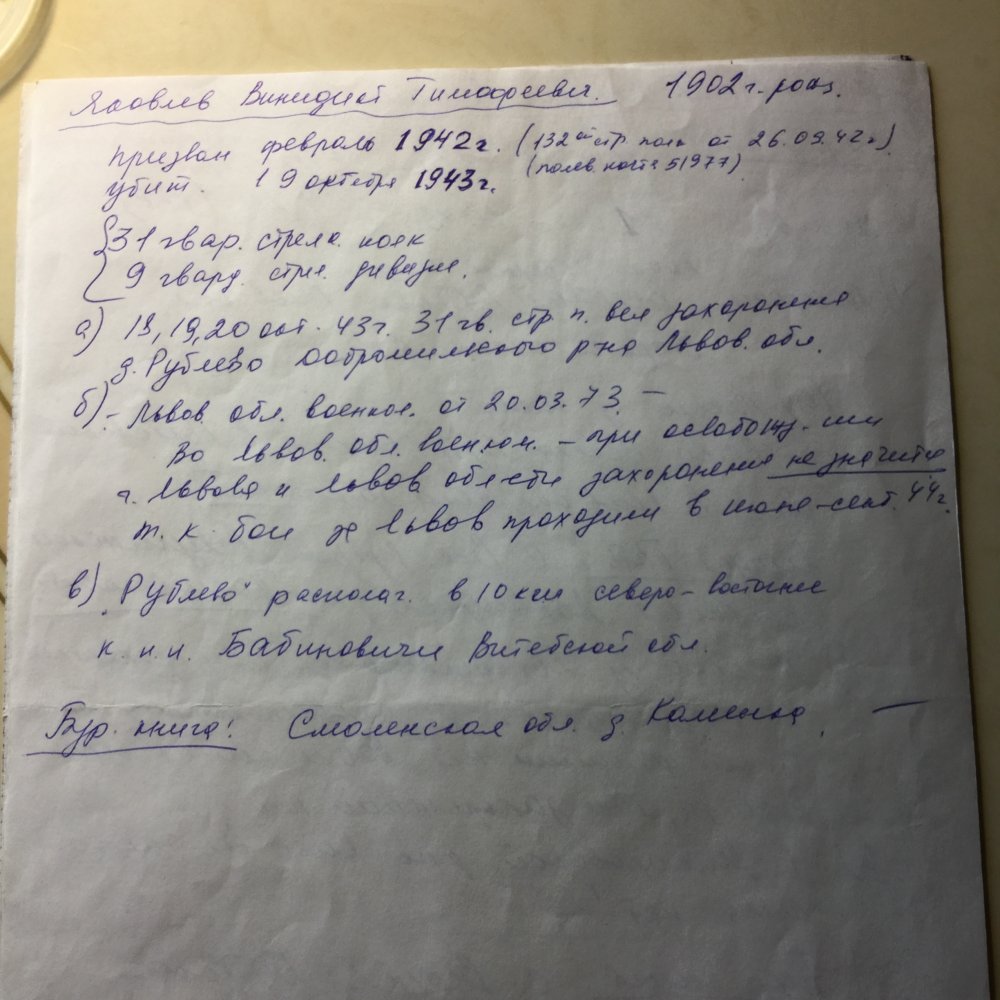 Яковлев Винидикт Тимофеевич. 1902 г. рожд.
Призван февраль 1942 г. (132ой стр. полк от 26.09.42 г.)
(полев. почта 51977)
убит. 19 октября 1943 г.
31 гвар. стрелк. полк
9 гвард. стрел. дивизия.
а) 18, 19, 20 окт. 43 г. 31 гв. стр. п. вел захоронения
д. Рублево Добромильского р-на Львов. обл.
б) - Львов. обл. военком. от 20.03.73. —
Во Львов. обл. военком. - при освобожд-нии
г. Львова и Львов. области захоронение не значится
т. к. бои за Львов проходили в июле-сент. 44 г.
в) "Рублево" располаг. в 10 км северо-восточнее
к. н. п. Бабиновичи Витебской обл.
Бур. книга: Смоленская обл. д. Каменка —